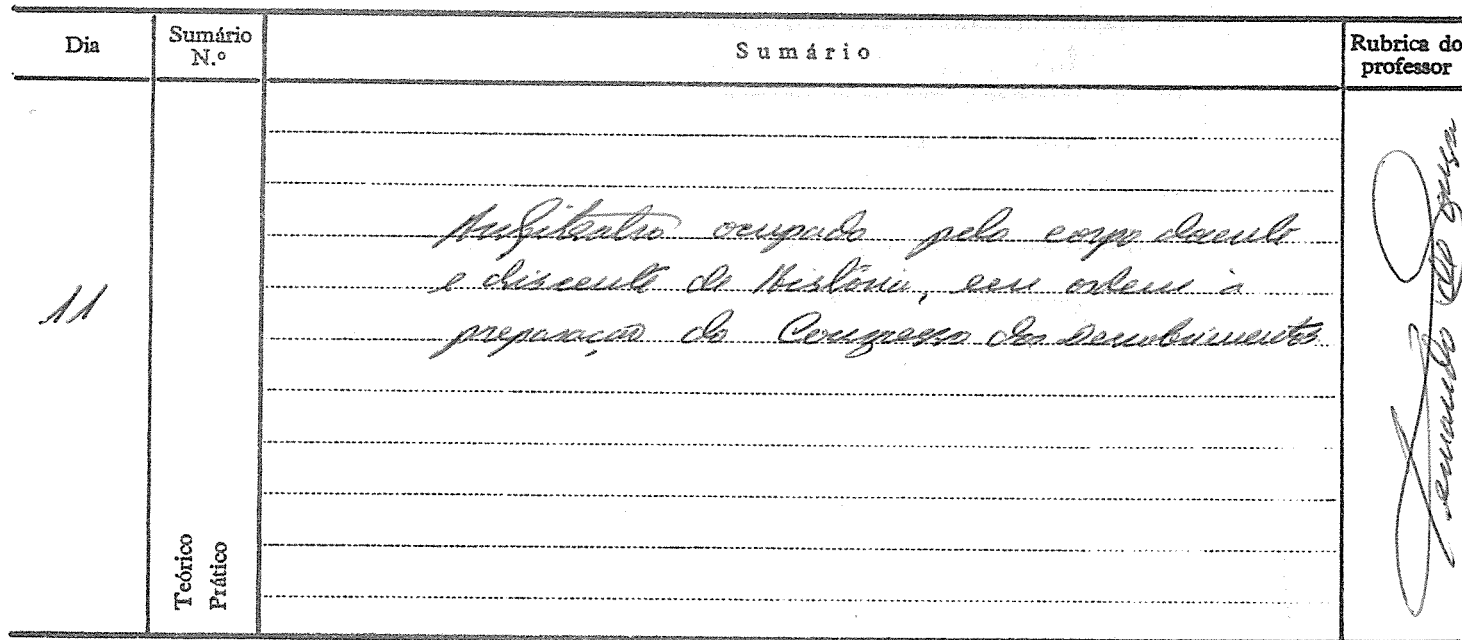 Dia
Sumário
N.º
Sumário
Rubrica do
professor
11
Anfiteatro ocupado pelo corpo docente
e discente de História, em ordem à
preparação do Congresso dos Descobrimentos
Teórico
Prático
Fernando de Sousa